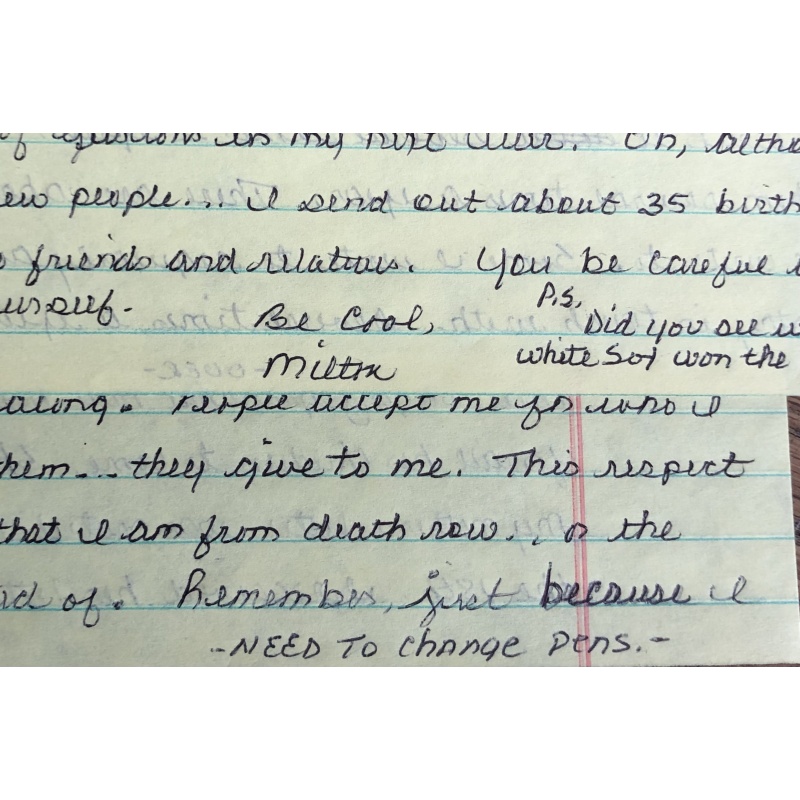 of questions in my next letter. Oh, altho
ew people... I send out about 35 birth
friends and relatives. You be careful
urself-
Be Cool,
Milton
P.S.
Did you see
white Sox won the
along. People accept me for who I
hem... they give to me. This respect
that I am from death row.. or the
id of. Remember, just because I
-NEED TO change pens.-